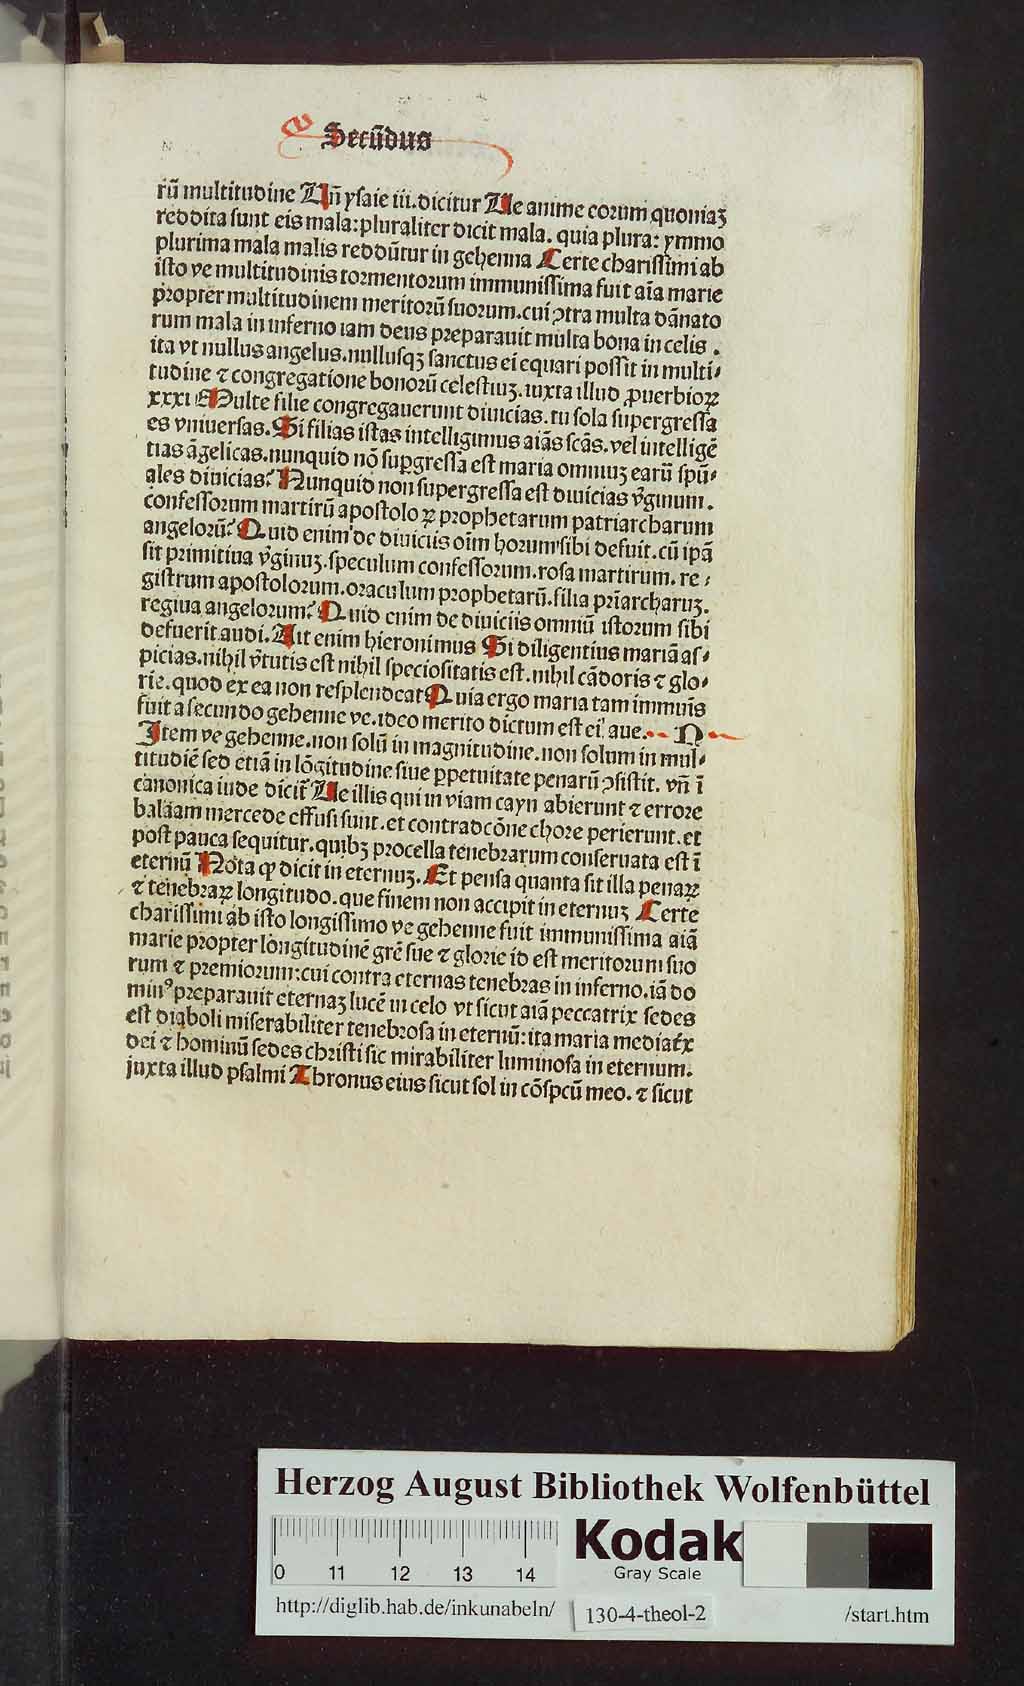 Secūdus
rū multitudine Uñ ysaie iii. dicitur Ue anime eorum quoniaʒ
reddita sunt eis mala: pluraliter dicit mala. quia plura: ymmo
plurima mala malis reddūtur in gehenna Certe charissimi ab
isto ve multitudinis tormentorum immunissima fuit aīa marie
propter multitudinem meritorū suorum. cui ꝯtra multa dānato
rum mala in inferno iam deus preparauit multa bona in celis.
ita vt nullus angelus. nullusqʒ sanctus ei equari possit in multi⸗
tudine ⁊ congregatione bonorū celestiuʒ. iuxta illud ꝓuerbioꝝ
xxxi Multe filie congregauerunt diuicias. tu sola supergressa
es vniuersas. Si filias istas intelligimus aīas scās. vel intelligē
tias āgelicas. nunquid nō suꝑgressa est maria omniuʒ earū spū⸗
ales diuicias? Nunquid non supergressa est diuicias v̄ginum.
confessorum martirū apostoloꝝ prophetarum patriarcharum
angelorū? Quid enim de diuiciis oīm horum sibi defuit. cū ipā
sit primitiua v̄ginuʒ. speculum confessorum. rosa martirum. re⸗
gistrum apostolorum. oraculum prophetarū. filia pr̄iarcharuʒ.
regina angelorum? Quid enim de diuiciis omniū istorum sibi
defuerit audi. Ait enim hieronimus Si diligentius mariā as⸗
picias. nihil v̄tutis est nihil speciositatis est. nihil cādoris ⁊ glo⸗
rie. quod ex ea non resplendeat Quia ergo maria tam immuīs
fuit a secundo gehenne ve. ideo merito dictum est ei aue. N
Item ve gehenne. non solū in magnitudine. non solum in mul⸗
titudiē sed etiā in lōgitudine siue ꝑpetuitate penarū ꝯsistit. vn̄ ī
canonica iude dicit᷑ Ue illis qui in viam cayn abierunt ⁊ errore
balaam mercede effusi sunt. et contradcōne chore perierunt. et
post pauca sequitur. quibʒ procella tenebrarum conseruata est ī
eternū Nota ꝙ dicit in eternuʒ. Et pensa quanta sit illa penaꝝ
⁊ tenebraꝝ longitudo. que finem non accipit in eternuʒ Certe
charissimi ab isto longissimo ve gehenne fuit immunissima aiā
marie propter longitudinē grē sue ⁊ glorie id est meritorum suo
rum ⁊ premiorum: cui contra eternas tenebras in inferno. iā do
minꝰ preparauit eternaʒ lucē in celo vt sicut aiā peccatrix sedes
est diaboli miserabiliter tenebrosa in eternū: ita maria mediat᷑x
dei ⁊ hominū sedes christi sic mirabiliter luminosa in eternum.
juxta illud psalmi Thronus eius sicut sol in cōspcū meo. ⁊ sicut
Herzog August Bibliothek Wolfenbüttel
0 11 12 13 14
Kodak
Gray Scale
http://diglib.hab.de/inkunabeln/ 130-4-theol-2 /start.htm